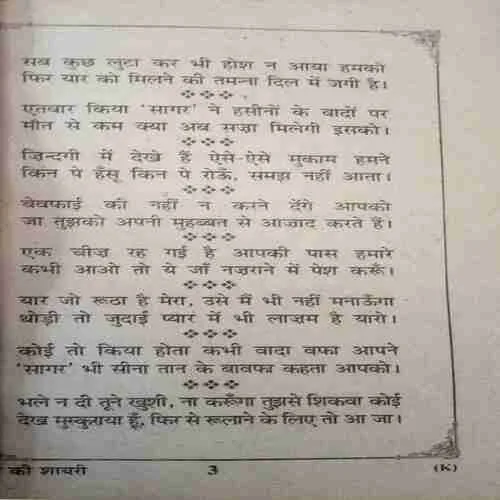 सब कुछ लुटा कर भी होश न आया हमको
फिर यार को मिलने की तमन्ना दिल में जगी है।
एतवार किया ‘सागर’ ने हसीनों के वादों पर
मौत से कम क्या अब सज़ा मिलेगी इसको।
ज़िन्दगी में देखे हैं ऐसे-ऐसे मुकाम हमने
किन पे हँसू किन पे रोऊँ, समझ नहीं आता।
बेवफाई की नहीं न करने देंगे आपको
जा तुझको अपनी मुहब्बत से आज़ाद करते हैं।
एक चीज़ रह गई है आपकी पास हमारे
कभी आओ तो ये जाँ नज़राने में पेश करूँ।
यार जो रूठा है मेरा, उसे मैं भी नहीं मनाऊँगा
थोड़ी तो जुदाई प्यार में भी लाज़म है यारो।
कोई तो किया होता कभी वादा वफा आपने
‘सागर’ भी सीना तान के बावफा कहता आपको।
भले न दी तूने खुशी, ना करूँगा तुझसे शिकवा कोई
देख मुस्कुराया हूँ, फिर से रूलाने के लिए तो आ जा।
की शायरी 3 (K)